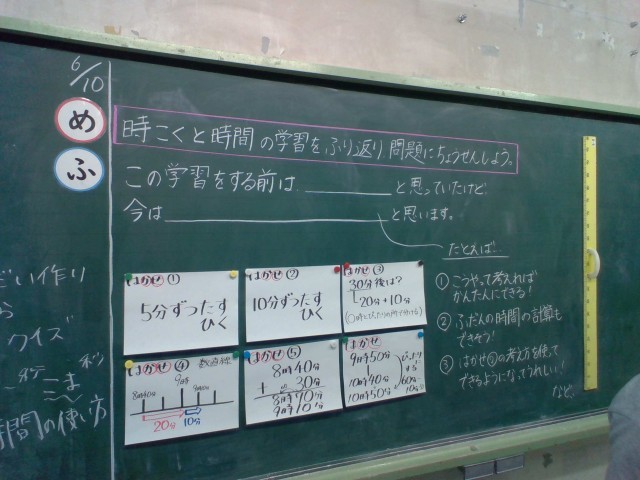 6/10
め
時こくと時間の学習をふり返り、問題にちょうせんしよう。
ふ
この学習をする前は と思っていたけど、
今は と思います。
たとえば…
① こうやって考えれば
かんたんにできる!
② ふだんの時間の計算も
できそう!
③ はかせ の考え方を使って
できるようになってうれしい!
など
はかせ①
5分ずつたす
ひく
はかせ②
10分ずつたす
ひく
はかせ③
30分後は?
20分+10分
はかせ④ 数直線
8時40分
9時
20分
10分
はかせ⑤
8時40分
+ 30分
8時70分
9時10分
はかせ⑥
9時50分
10時40分
10時50分
ぴったり
60分
10分
い作り
クイズ
時間の使い方